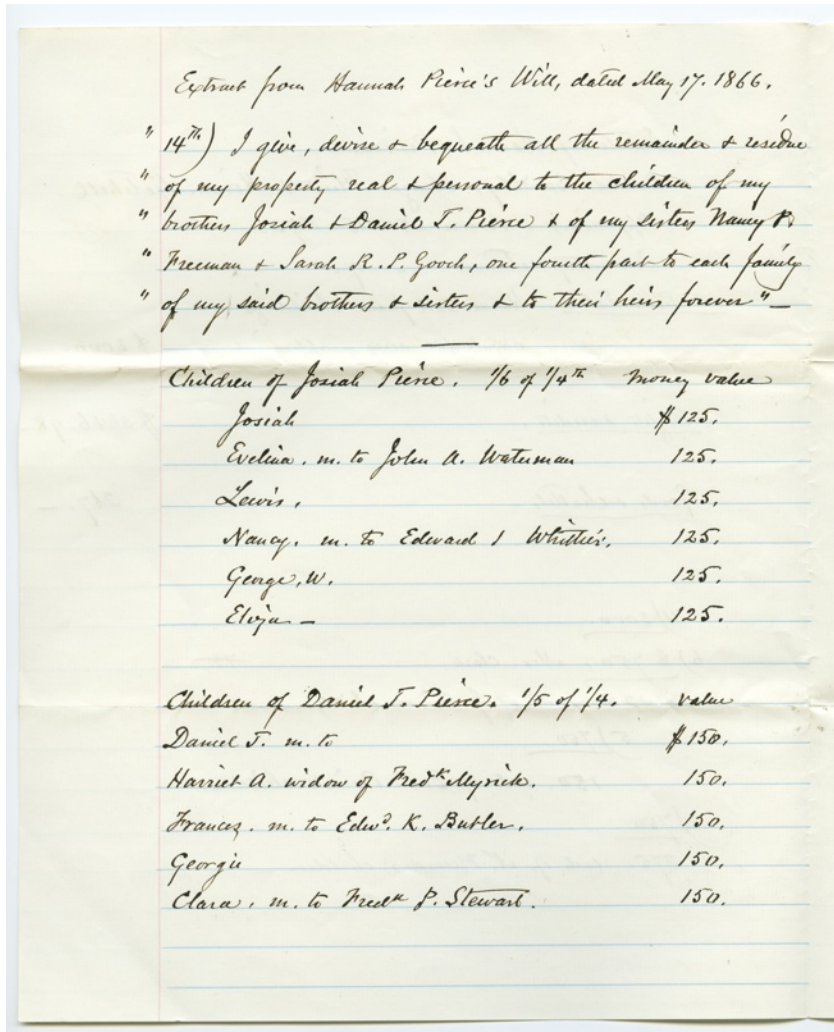 Extract from Hannah Pierce's Will, dated May 17. 1866.
" 14th) I give, devise & bequeath all the remainder & residue
" of my property real & personal to the children of my
" brothers Josiah & Daniel T. Pierce & of my sisters Nancy P.
" Freeman & Sarah R. P. Gooch, one fourth part to each family
" of my said brothers & sisters & to their heirs forever" —
Children of Josiah Pierce. 1/6 of 1/4th money value
Josiah $125.
Evelina. m. to John A. Waterman 125.
Lewis, 125.
Nancy. m. to Edward Whittier. 125.
George, W. 125.
125.
Children of Daniel T. Pierce. 1/5 of 1/4. value
Daniel T. m. to $150.
Harriet A. widow of Fredk Myrick. 150.
Frances. m. to Edwd. K. Butler. 150.
Georgie 150.
Clara. m. to Fredk P. Stewart. 150.